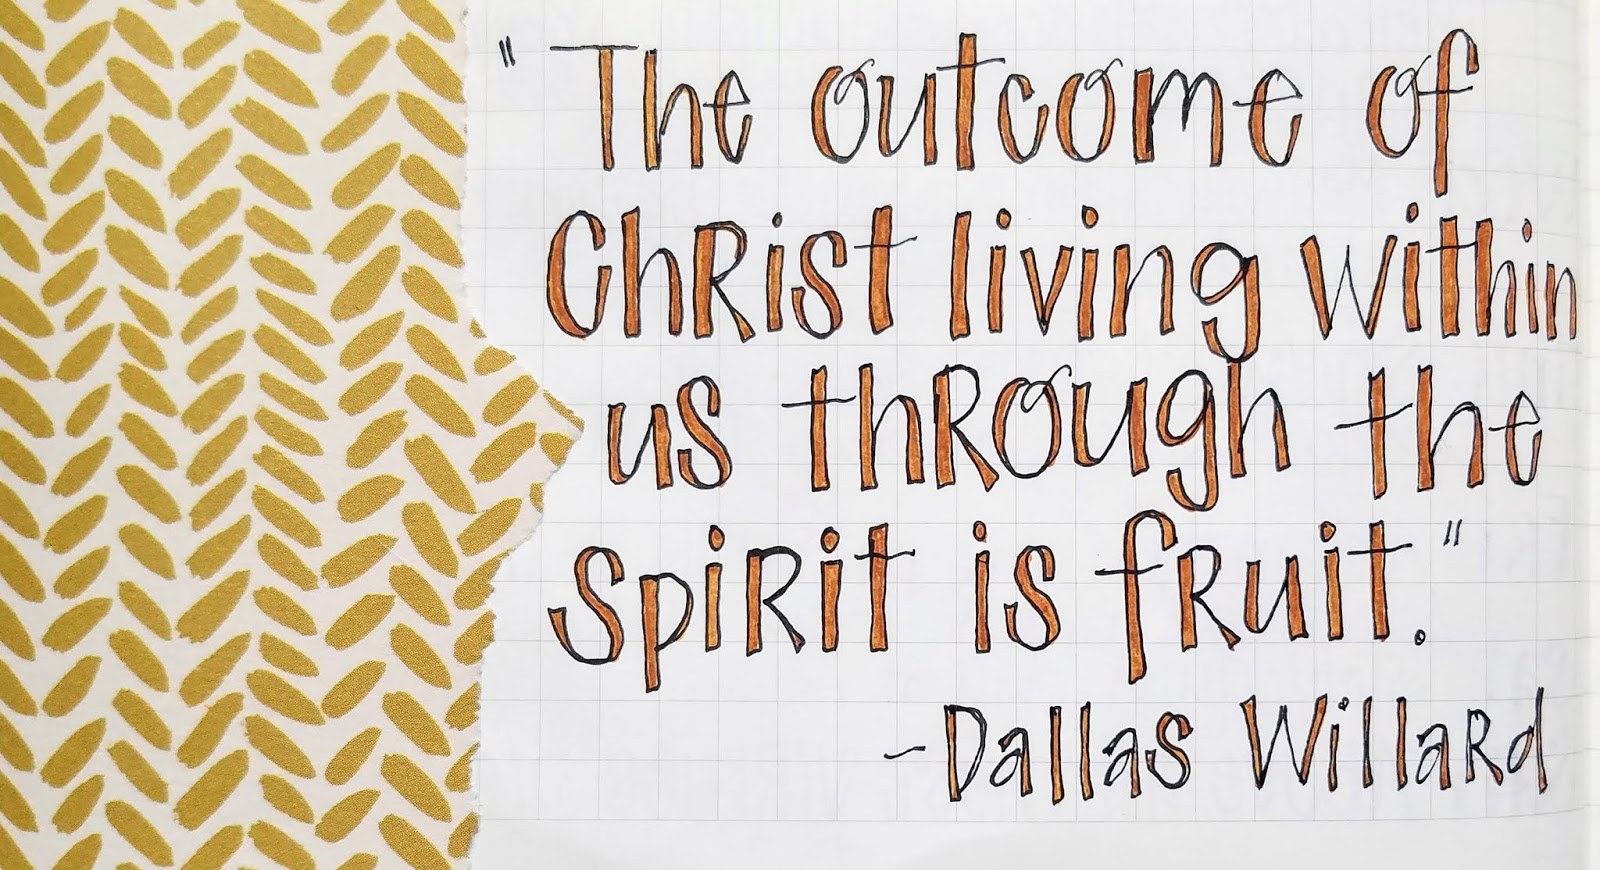 "The outcome of
Christ living within
us through the
Spirit is fruit."
-Dallas Willard